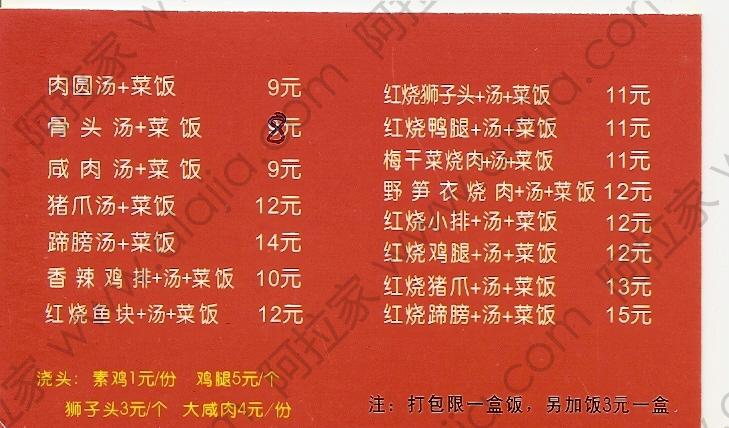 肉圆汤+菜饭 9元
骨头汤+菜饭 8元
咸肉汤+菜饭 9元
猪爪汤+菜饭 12元
蹄膀汤+菜饭 14元
香辣鸡排+汤+菜饭 10元
红烧鱼块+汤+菜饭 12元
浇头：素鸡1元/份 鸡腿5元/个
狮子头3元/个 大咸肉4元/份
红烧狮子头+汤+菜饭 11元
红烧鸭腿+汤+菜饭 11元
梅干菜烧肉+汤+菜饭 11元
野笋衣烧肉+汤+菜饭 12元
红烧小排+汤+菜饭 12元
红烧鸡腿+汤+菜饭 12元
红烧猪爪+汤+菜饭 13元
红烧蹄膀+汤+菜饭 15元
注：打包限一盒饭，另加饭3元一盒
阿拉家 www.alajia.com